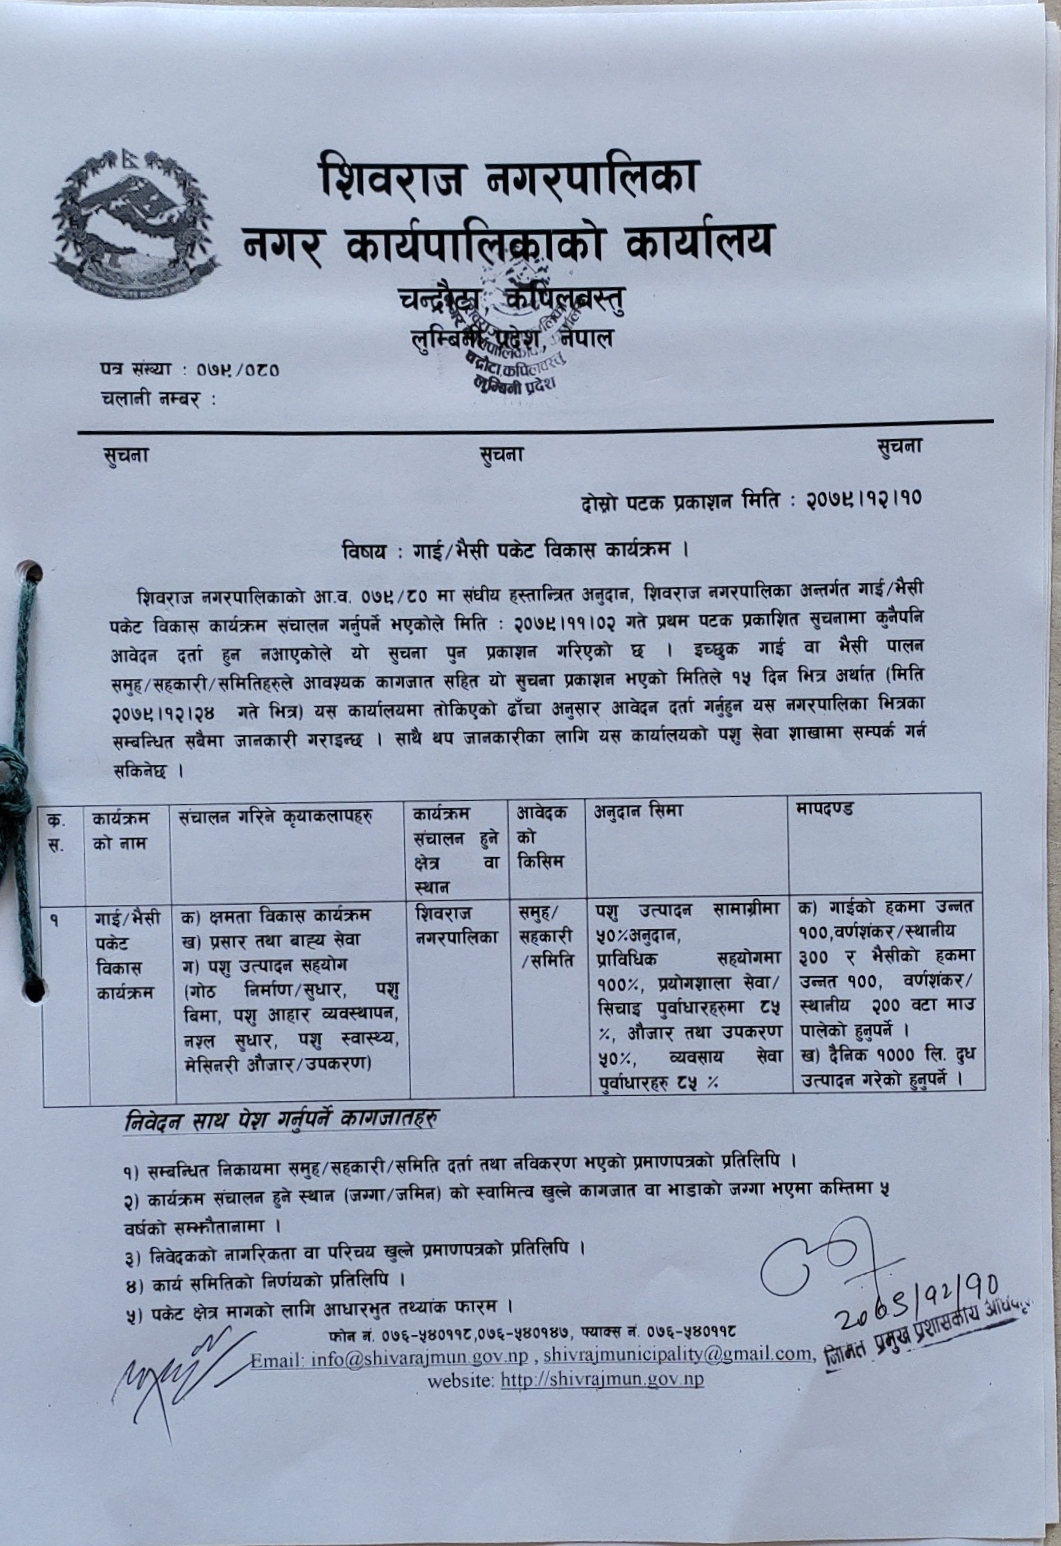 शिवराज नगरपालिका
नगर कार्यपालिकाको कार्यालय
चन्द्रौटा, कपिलवस्तु
लुम्बिनी प्रदेश, नेपाल
चन्द्रौटा, कपिलवस्तु
लुम्बिनी प्रदेश
पत्र संख्या : ०७९/०८०
चलानी नम्बर :
सुचना सुचना सुचना
दोस्रो पटक प्रकाशन मिति : २०७९।१२।१०
विषय : गाई/भैसी पकेट विकास कार्यक्रम ।
शिवराज नगरपालिकाको आ.व. ०७९/८० मा संघीय हस्तान्त्रित अनुदान, शिवराज नगरपालिका अन्तर्गत गाई/भैसी
पकेट विकास कार्यक्रम संचालन गर्नुपर्ने भएकोले मिति : २०७९।११।०२ गते प्रथम पटक प्रकाशित सुचनामा कुनैपनि
आवेदन दर्ता हुन नआएकोले यो सुचना पुन प्रकाशन गरिएको छ । इच्छुक गाई वा भैसी पालन
समुह/सहकारी/समितिहरुले आवश्यक कागजात सहित यो सुचना प्रकाशन भएको मितिले १५ दिन भित्र अर्थात (मिति
२०७९।१२।२४ गते भित्र) यस कार्यालयमा तोकिएको ढाँचा अनुसार आवेदन दर्ता गर्नुहुन यस नगरपालिका भित्रका
सम्बन्धित सबैमा जानकारी गराइन्छ । साथै थप जानकारीका लागि यस कार्यालयको पशु सेवा शाखामा सम्पर्क गर्न
सकिनेछ ।
क.
स.
कार्यक्रम
को नाम
संचालन गरिने कृयाकलापहरु
कार्यक्रम
संचालन हुने
क्षेत्र वा
स्थान
आवेदक
को
किसिम
अनुदान सिमा
मापदण्ड
१
गाई/भैसी
पकेट
विकास
कार्यक्रम
क) क्षमता विकास कार्यक्रम
ख) प्रसार तथा बाह्य सेवा
ग) पशु उत्पादन सहयोग
(गोठ निर्माण/सुधार, पशु
बिमा, पशु आहार व्यवस्थापन,
नश्ल सुधार, पशु स्वास्थ्य,
मेसिनरी औजार/उपकरण)
शिवराज
नगरपालिका
समुह/
सहकारी
/समिति
पशु उत्पादन सामाग्रीमा
५०%अनुदान,
प्राविधिक सहयोगमा
१००%, प्रयोगशाला सेवा/
सिचाइ पुर्वाधारहरुमा ८५
%, औजार तथा उपकरण
५०%, व्यवसाय सेवा
पुर्वाधारहरु ८५ %
क) गाईको हकमा उन्नत
१००,वर्णशंकर/स्थानीय
३०० र भैसीको हकमा
उन्नत १००, वर्णशंकर/
स्थानीय २०० वटा माउ
पालेको हुनुपर्ने ।
ख) दैनिक १००० लि. दुध
उत्पादन गरेको हुनुपर्ने ।
निवेदन साथ पेश गर्नुपर्ने कागजातहरु
१) सम्बन्धित निकायमा समुह/सहकारी/समिति दर्ता तथा नविकरण भएको प्रमाणपत्रको प्रतिलिपि ।
२) कार्यक्रम संचालन हुने स्थान (जग्गा/जमिन) को स्वामित्व खुल्ने कागजात वा भाडाको जग्गा भएमा कम्तिमा ५
वर्षको सम्झौतानामा ।
३) निवेदकको नागरिकता वा परिचय खुल्ने प्रमाणपत्रको प्रतिलिपि ।
४) कार्य समितिको निर्णयको प्रतिलिपि ।
५) पकेट क्षेत्र मागको लागि आधारभुत तथ्यांक फारम ।
२०७९/१२/१०
निमित्त प्रमुख प्रशासकीय
फोन नं. ०७६-५४०११८,०७६-५४०१४७, फ्याक्स नं. ०७६-५४०११८
Email: info@shivarajmun.gov.np , shivrajmunicipality@gmail.com,
website: http://shivrajmun.gov.np